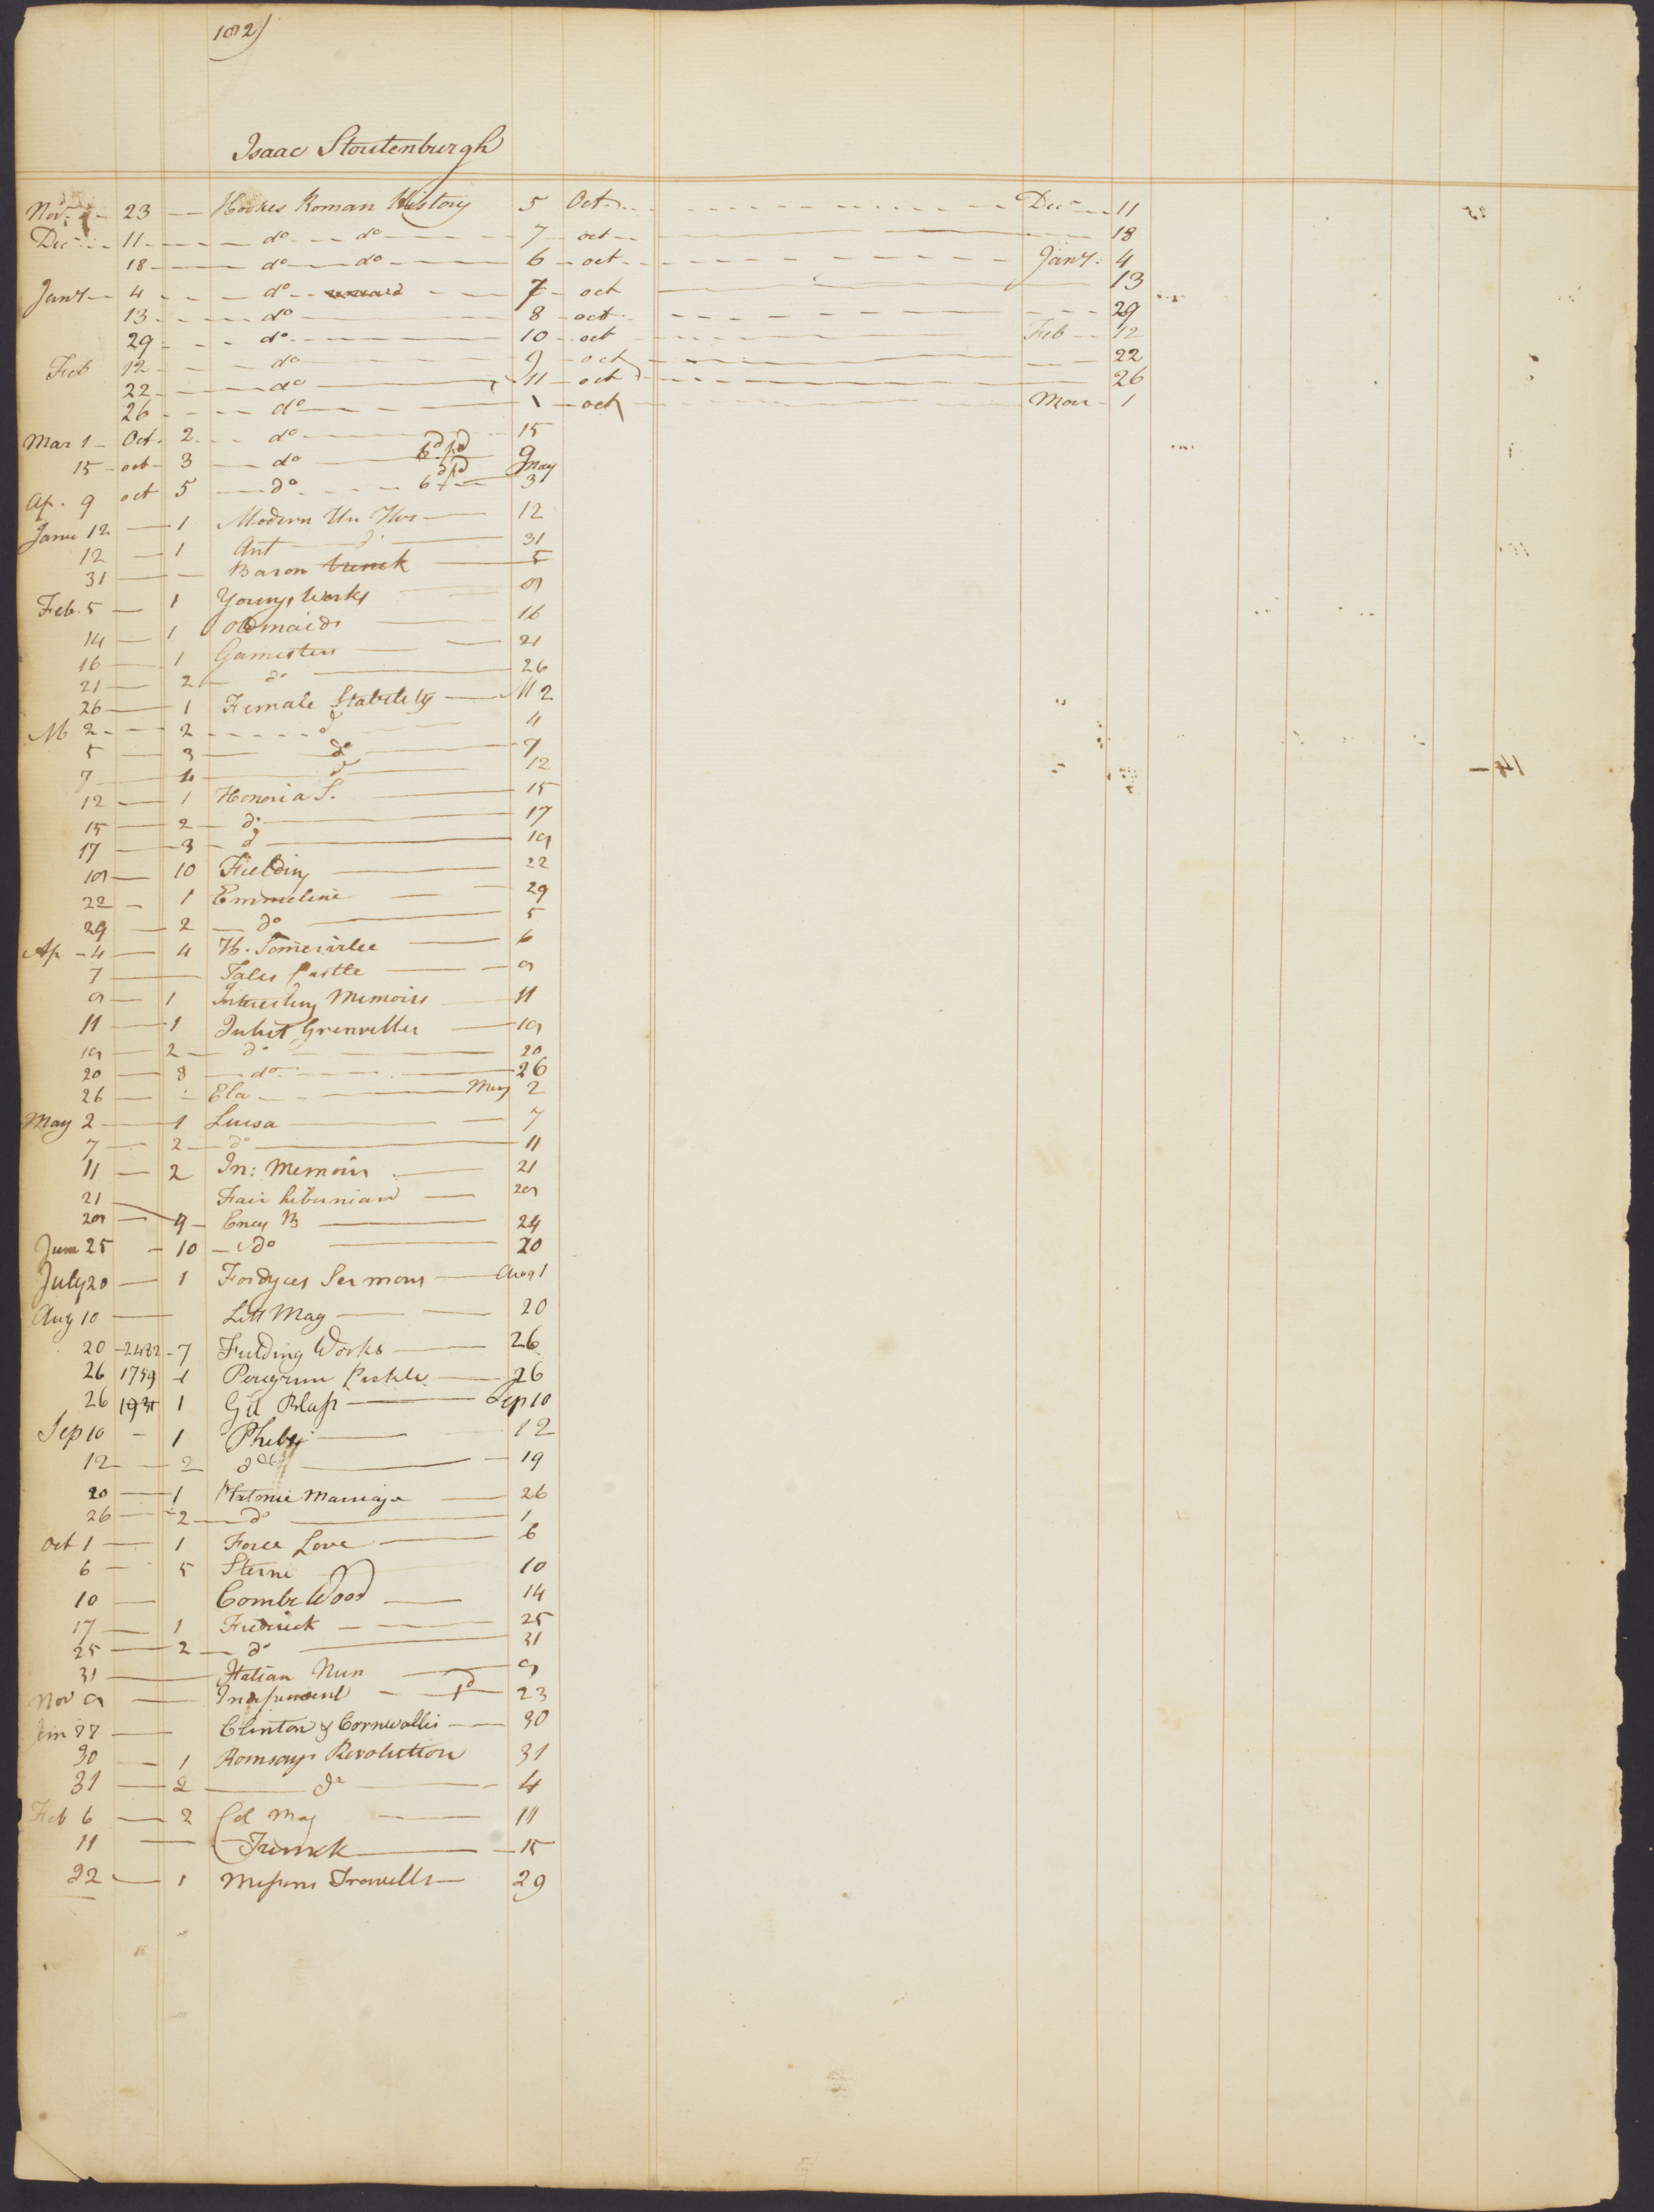 182)
Isaac Stoutenburgh
Nov. 23 Hookes Roman History 5 Oct. Decr 11
Decr 11 do do 7 oct 18
18 do do 6 oct Jany: 4
Jany 4 do 7 oct 13
13 do 8 oct 29
29 do 10 oct Feb 12
Feb 12 do 9 oct 22
22 do 11 oct 26
26 do 1 oct Mar 1
Mar 1 Oct 2 do 15
15 oct 3 do 6d pd 9
Ap. 9 oct 5 do 6d pd May 31
Janu 12 1 Modern Un. His 12
12 1 Ant do 31
31 Baron trenck 5
Feb. 5 1 Youngs Works 9
14 1 Old maids 16
16 1 Gamesters 21
21 2 do 26
26 1 Female Stability M 2
M 2 2 do 4
5 3 do 7
7 4 do 12
12 1 Honoria S. 15
15 2 do 17
17 3 do 19
19 10 Fielding 22
22 1 Emmeline 29
29 2 do 5
Ap 4 4 H. Somerville 6
7 Tales Castle 9
9 1 Interesting Memoirs 11
11 1 Juliet Grenviller 19
19 2 do 20
20 3 do 26
26 Ela May 2
May 2 1 Luisa 7
7 2 do 11
11 2 In: Memoirs 21
21 Fair hibernian 29
29 9 Ency B 24
June 25 10 do 20
July 20 1 Fordyces Sermons Aug 1
Aug 10 Litt Mag 20
20 2482 7 Fielding Works 26
26 1759 1 Peregrine Pickle 26
26 1931 1 Gil Blass Sep 10
Sep 10 1 Pheby 12
12 2 do 19
20 1 Platonic Marriage 26
26 2 do 1
Oct 1 1 Force Love 6
6 5 Sterne 10
10 Combe Wood 14
17 1 Fredrick 25
25 2 do 31
31 Italian Nun 9
Nov 9 Independent 1d 23
Jan 27 Clinton & Cornwallis 30
30 1 Romsays Revolution 31
31 2 do 4
Feb 6 2 Col Mag 11
11 Trenck 15
22 1 Missons Travells 29